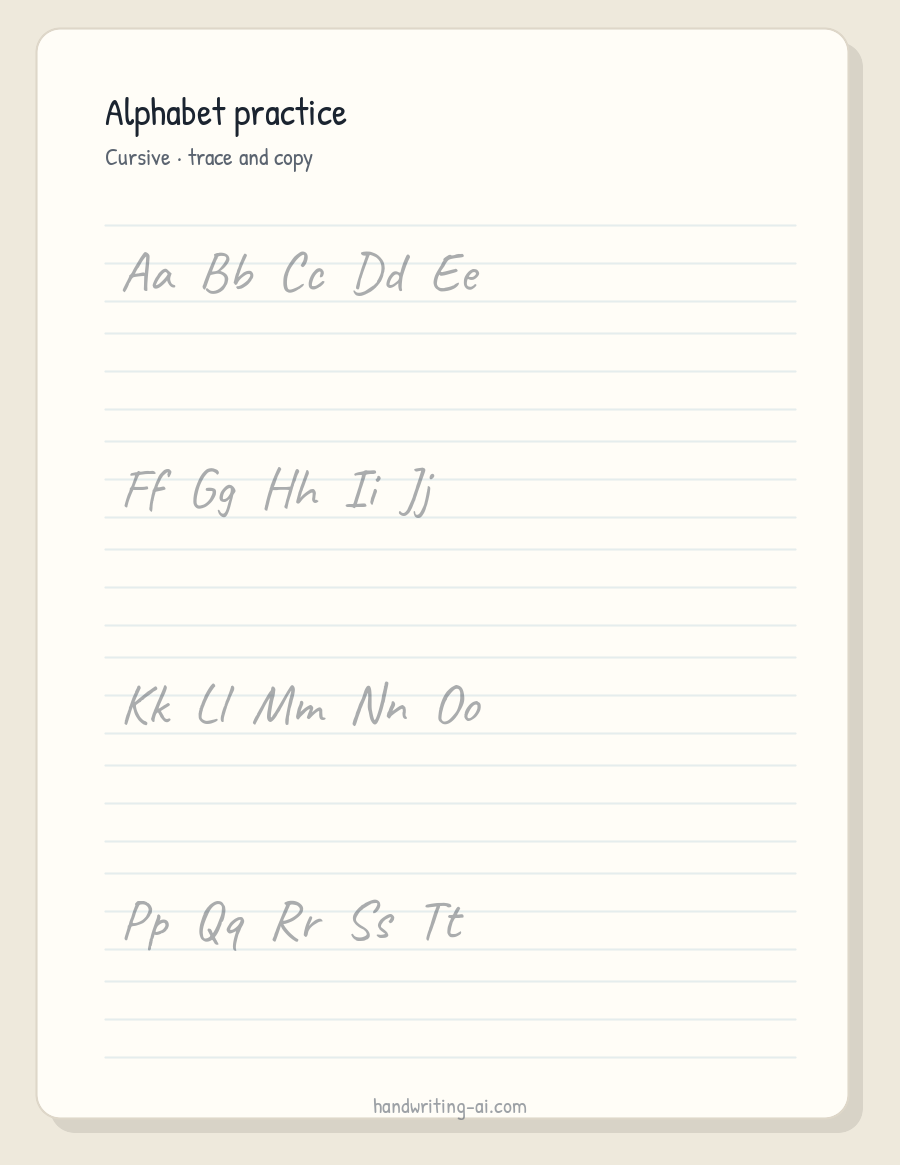 Alphabet practice
Cursive · trace and copy
Aa Bb Cc Dd Ee
Ff Gg Hh Ii Jj
Kk Ll Mm Nn Oo
Pp Qq Rr Ss Tt
handwriting-ai.com